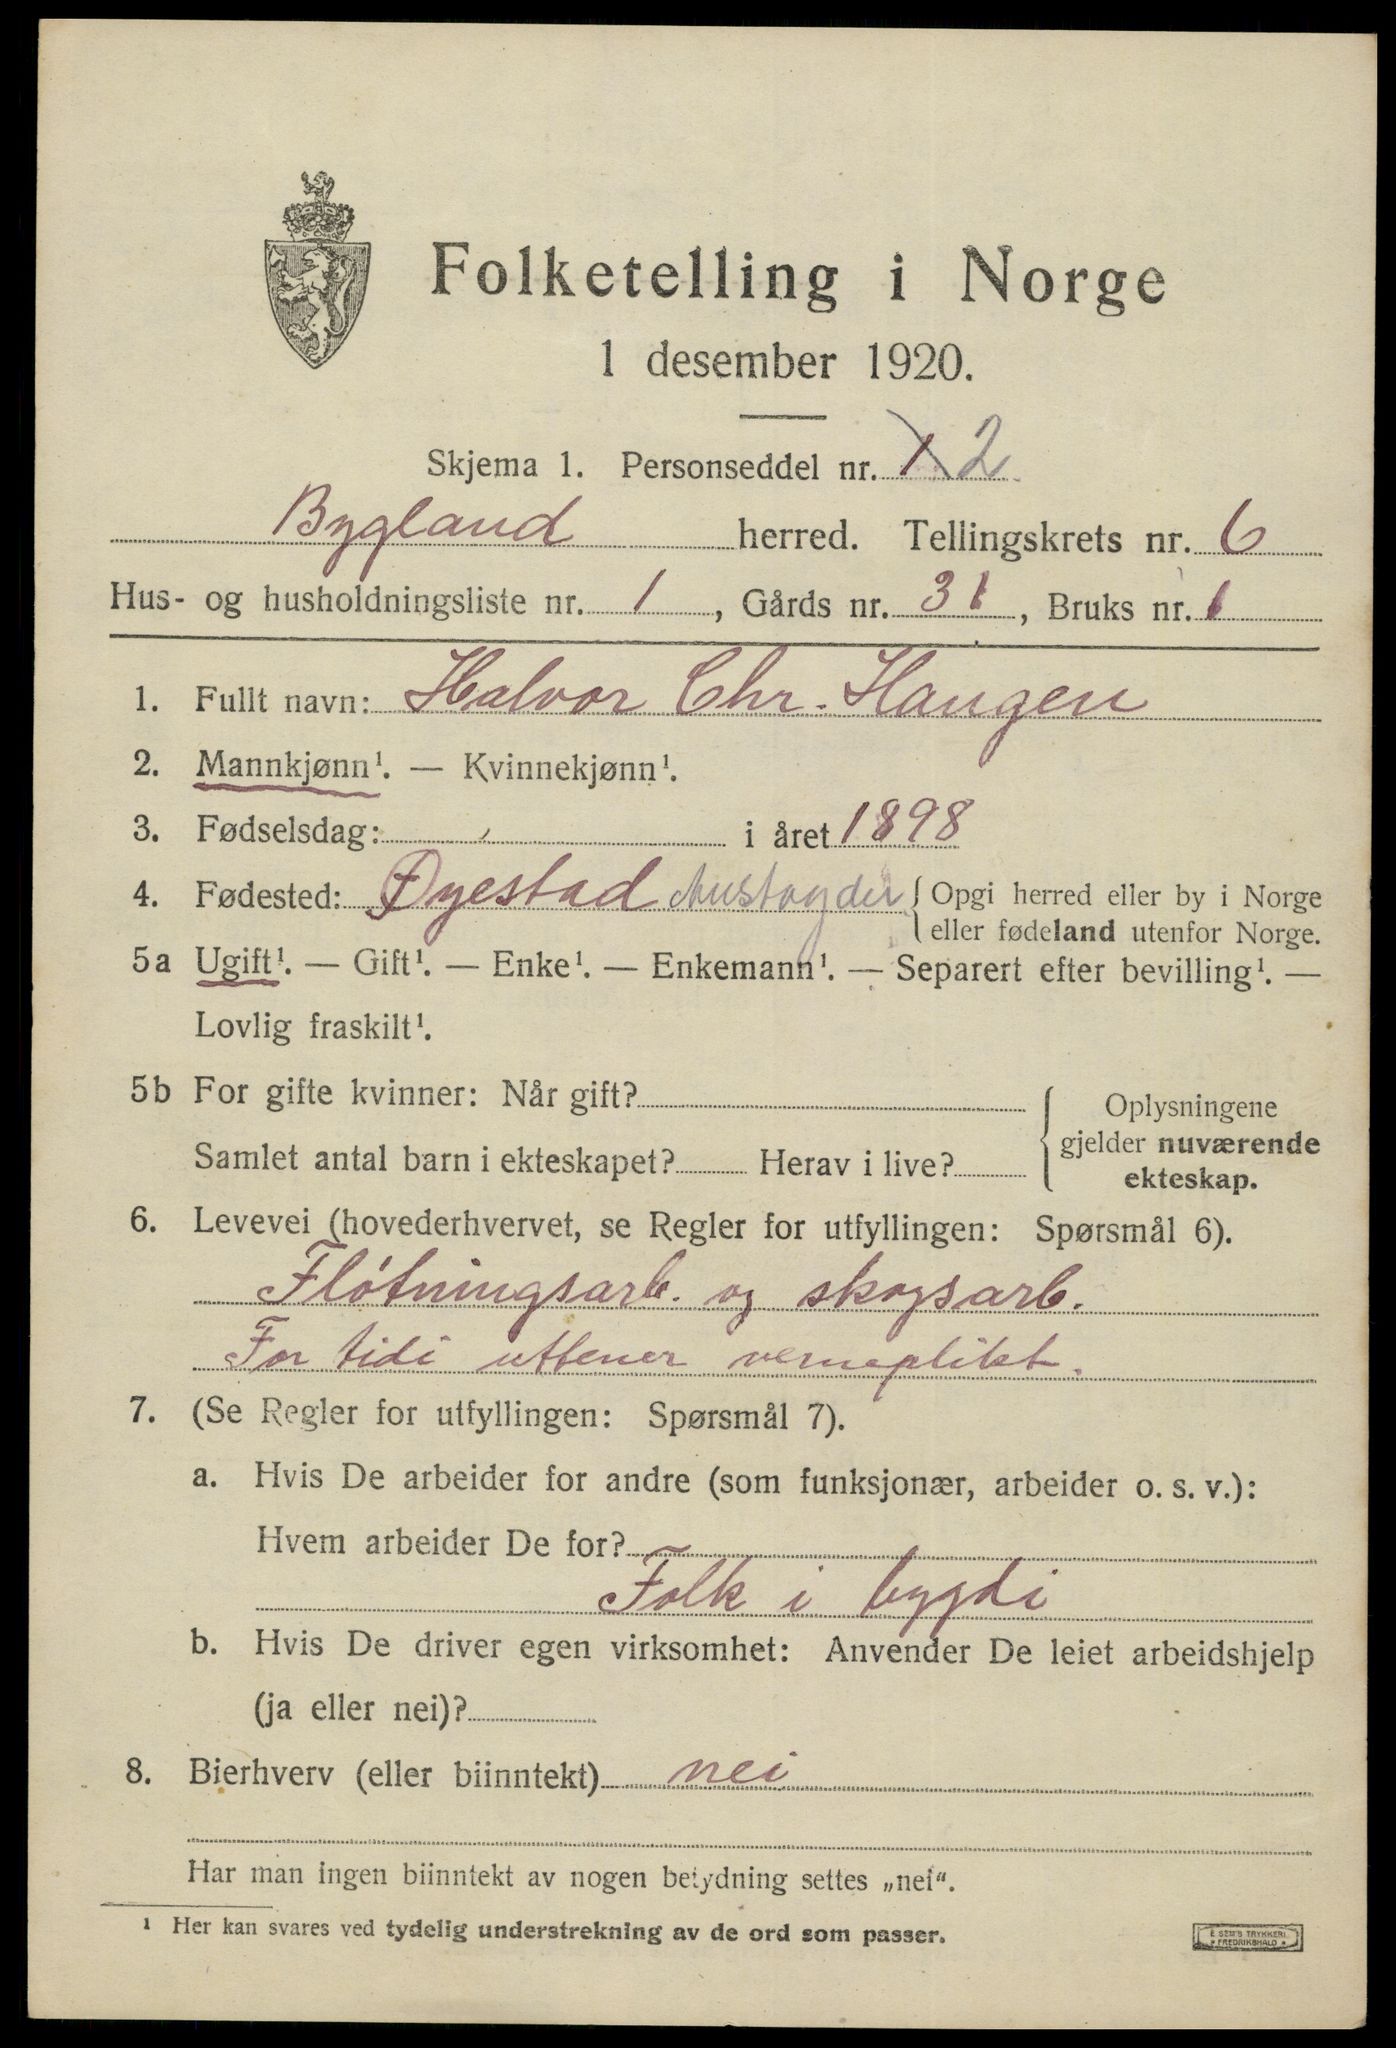 Folketelling i Norge
1 desember 1920.
Skjema 1. Personseddel nr. 1 2
Bygland herred. Tellingskrets nr. 6
Hus- og husholdningsliste nr. 1, Gårds nr. 31, Bruks nr. 1
1. Fullt navn: Halvor Chr. Haugen
2. Mannkjønn¹. — Kvinnekjønn¹.
3. Fødselsdag: i året 1898
4. Fødested: Øyestad Austagder { Opgi herred eller by i Norge
eller fødeland utenfor Norge.
5a Ugift¹. — Gift¹. — Enke¹. — Enkemann¹. — Separert efter bevilling¹. —
Lovlig fraskilt¹.
5b For gifte kvinner: Når gift?
Samlet antal barn i ekteskapet? Herav i live?
Oplysningene
gjelder nuværende
ekteskap.
6. Levevei (hovederhvervet, se Regler for utfyllingen: Spørsmål 6).
Fløtningsarb. og skogsarb.
For tidi uttener verneplikt.
7. (Se Regler for utfyllingen: Spørsmål 7).
a. Hvis De arbeider for andre (som funksjonær, arbeider o. s. v.):
Hvem arbeider De for?
Folk i bygdi
b. Hvis De driver egen virksomhet: Anvender De leiet arbeidshjelp
(ja eller nei)?
8. Bierhverv (eller biinntekt) nei
Har man ingen biinntekt av nogen betydning settes „nei“.
¹ Her kan svares ved tydelig understrekning av de ord som passer.
E SEM'S TRYKKERI
FREDRIKSHALD